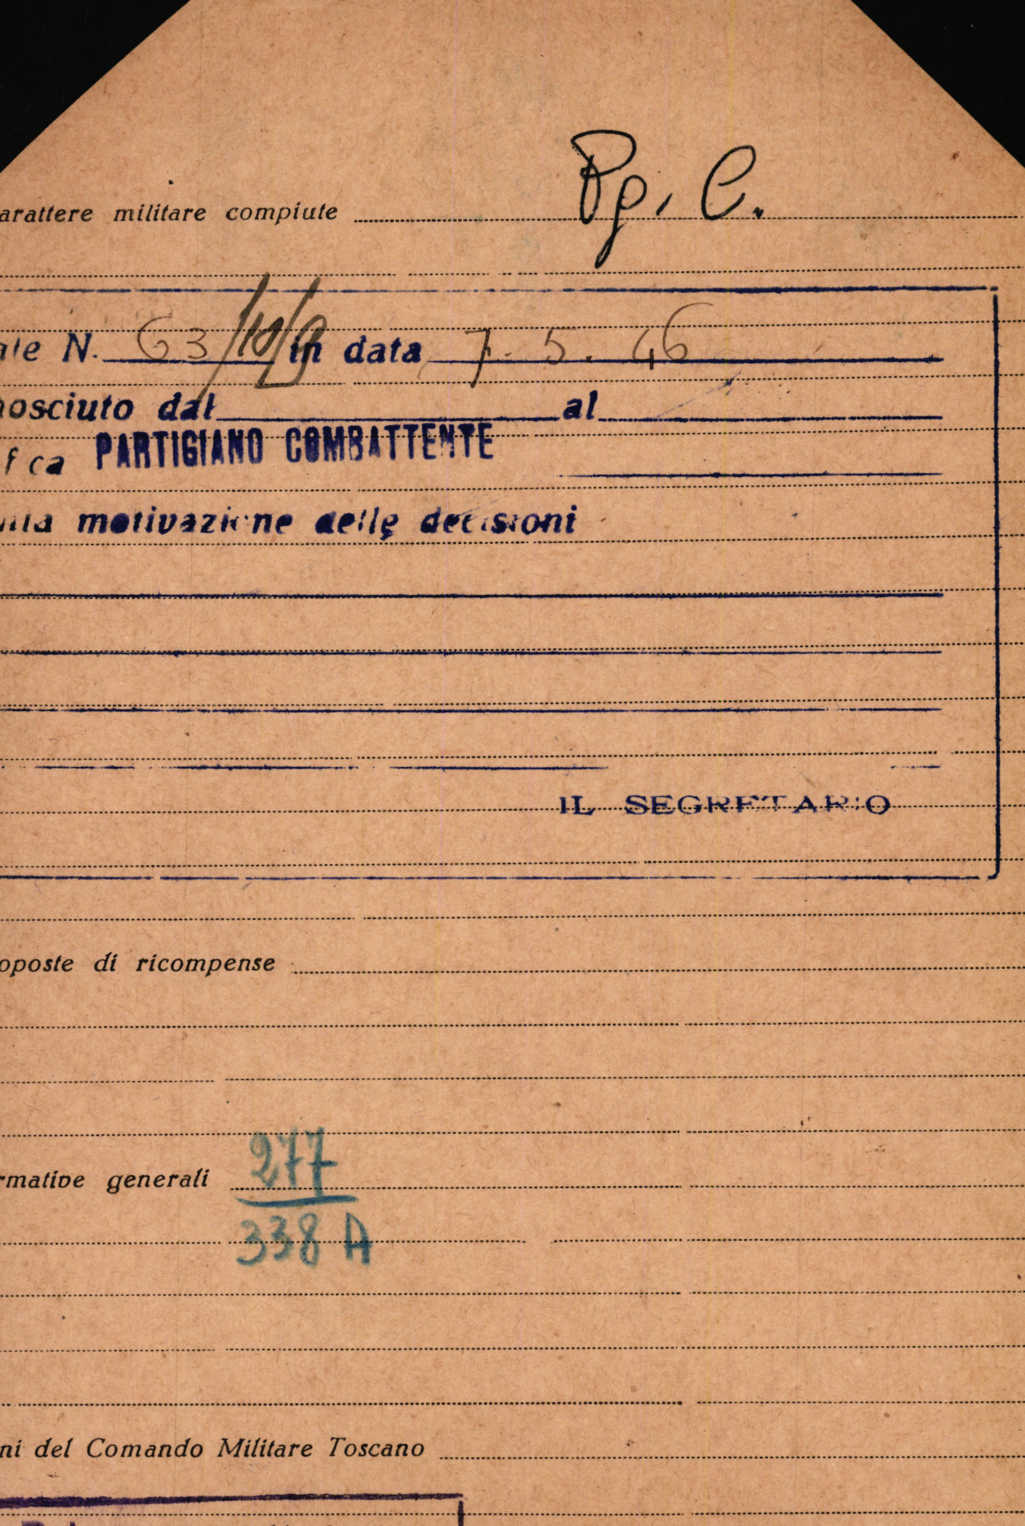 Pg. C.
arattere militare compiute
ale N. 63/10/9 in data 7.5.46
nosciuto dal al
fica PARTIGIANO COMBATTENTE
motivazione delle decisioni
IL SEGRETARIO
oposte di ricompense
rmative generali 277
338 A
ni del Comando Militare Toscano